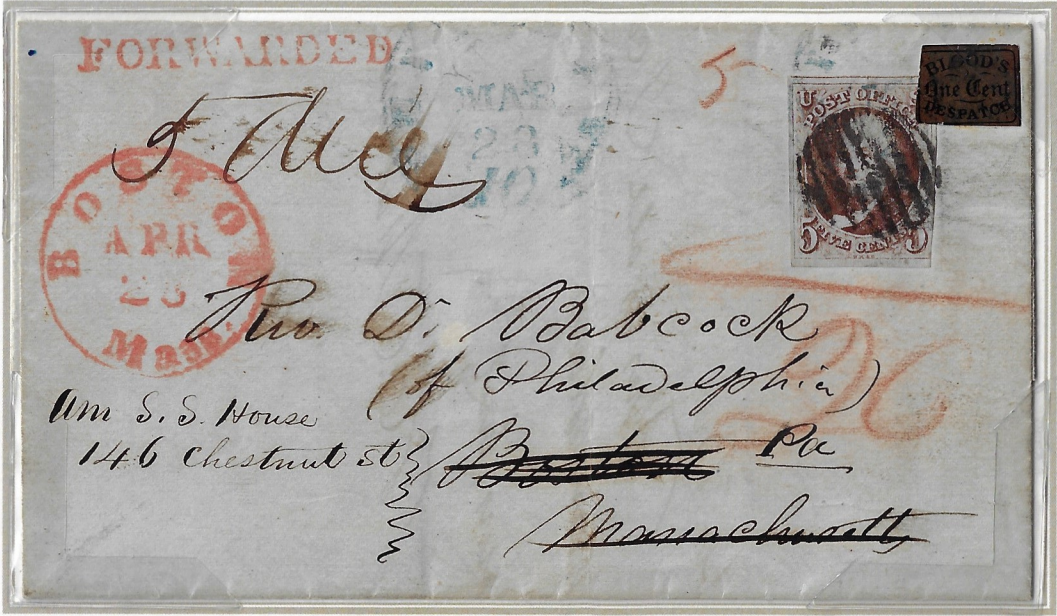 FORWARDED
5
BLOOD'S
One Cent
DESPATCH
U
POST OFFICE
FIVE CENTS
MAR
23
10
BOSTON
APR
Mass.
Rev. Dr. Babcock
(of Philadelphia)
Am S. S. House
146 Chestnut St
Boston Pa
Massachusetts